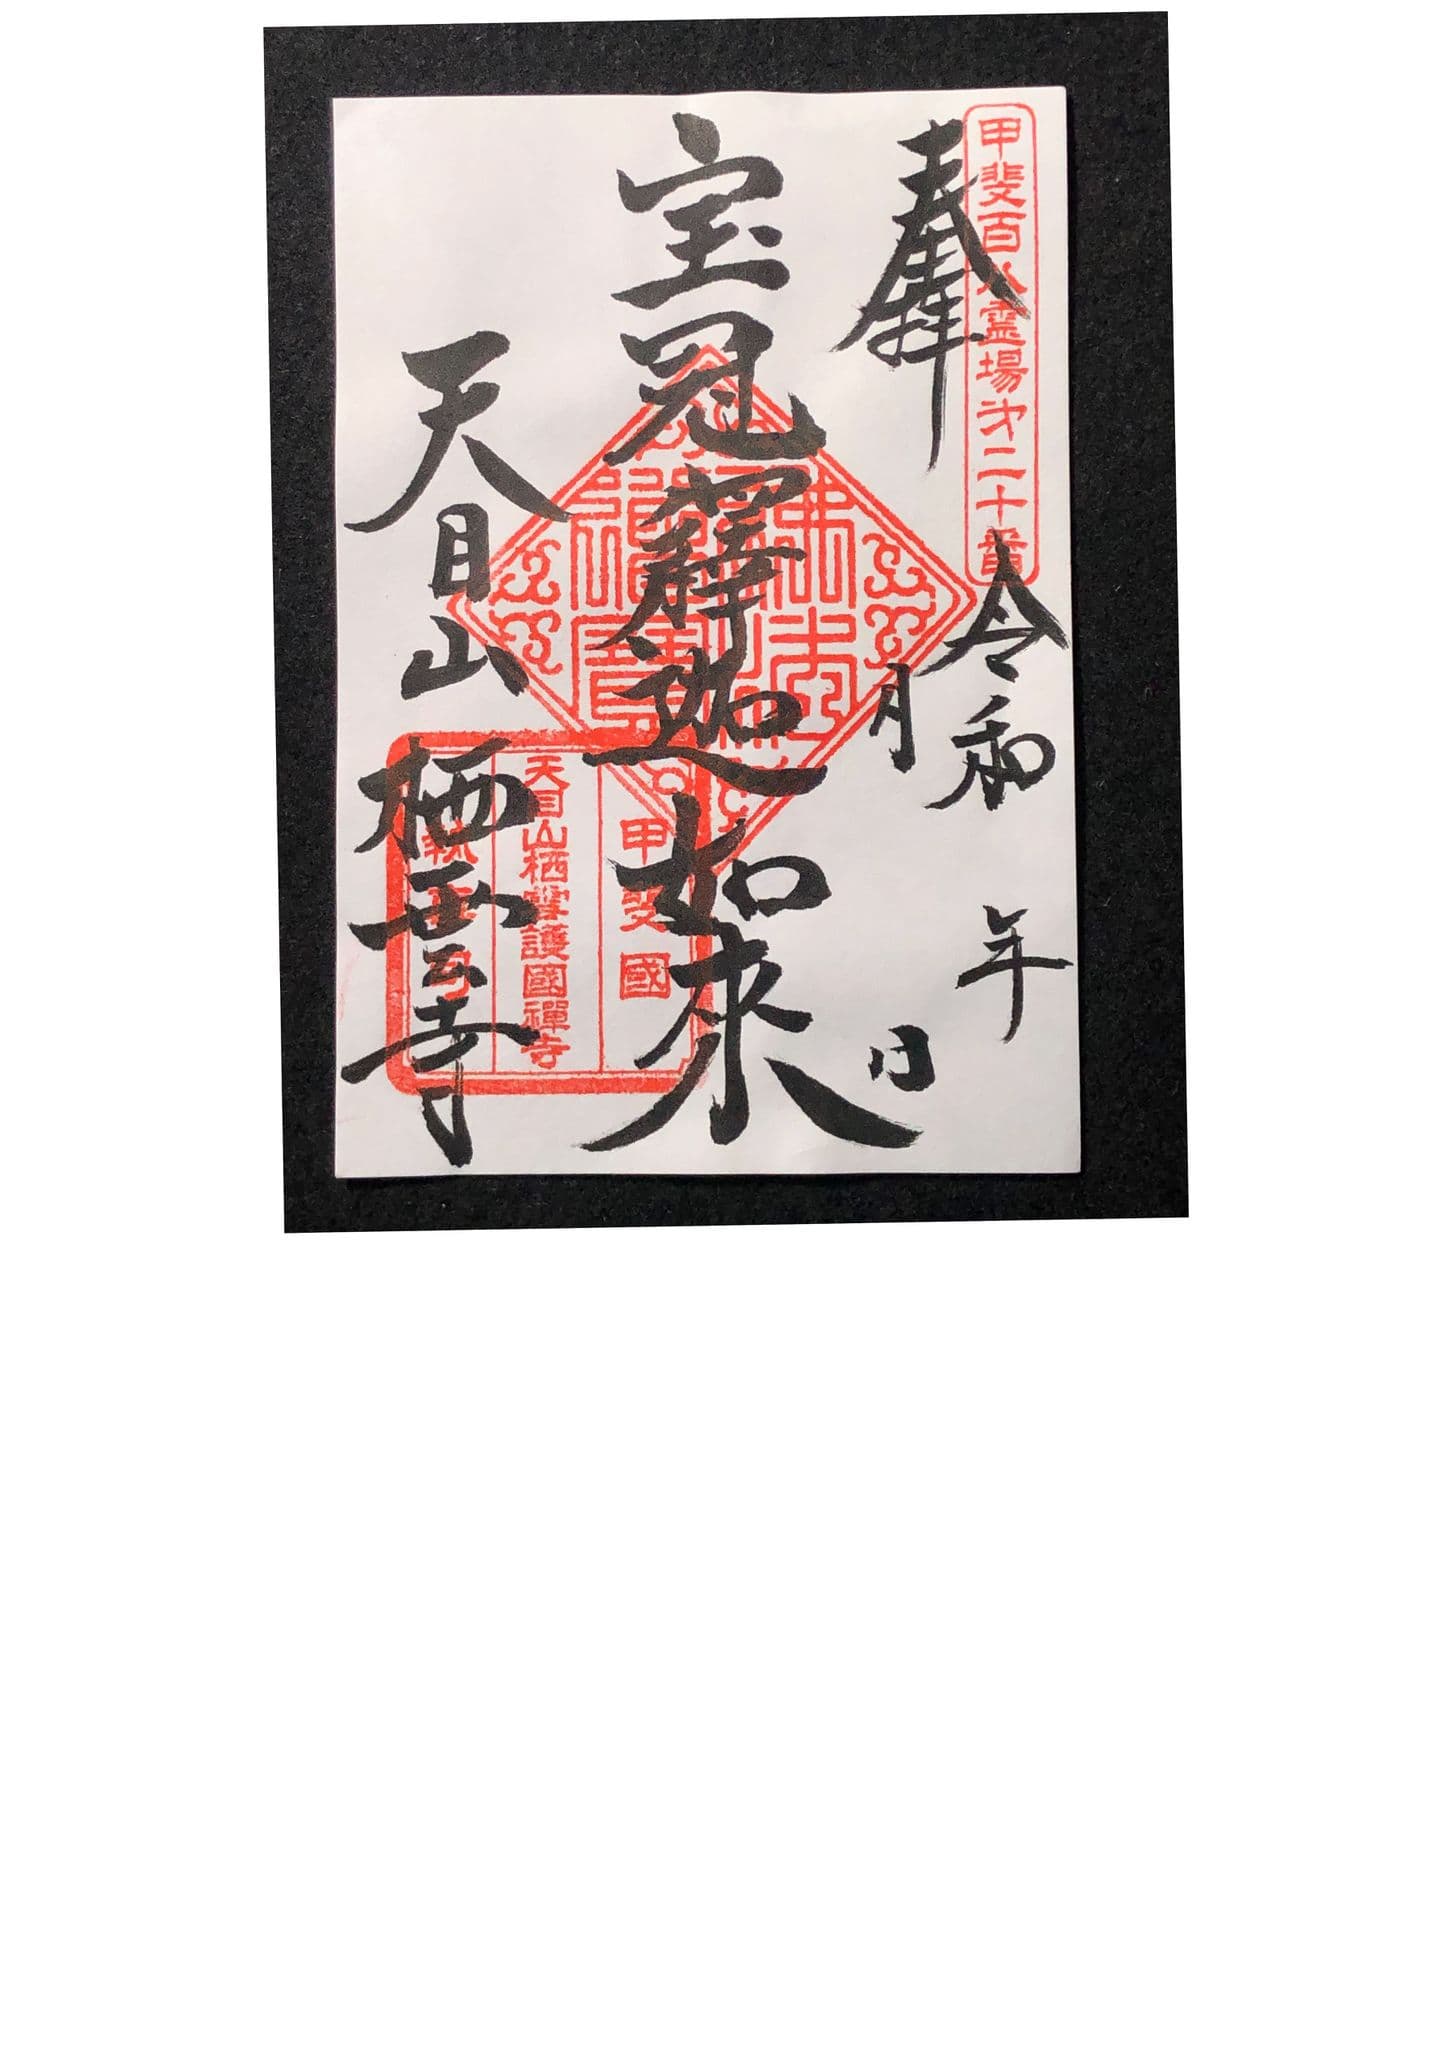 甲斐百八霊場第二十番
奉拝
令和 年
月 日
宝冠釋迦如来
佛法僧寶
天目山
栖雲寺
甲斐國
天目山栖雲護國禪寺